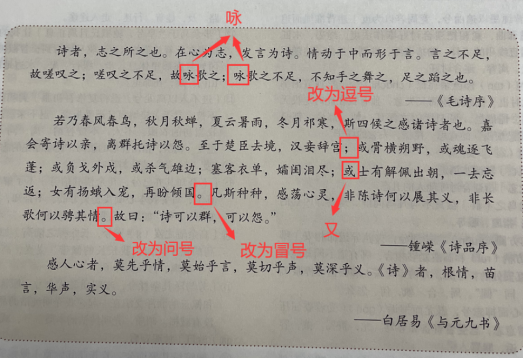 咏
诗者，志之所之也。在心为志，发言为诗。情动于中而形于言。言之不足，
故嗟叹之；嗟叹之不足，故咏歌之；咏歌之不足，不知手之舞之，足之蹈之也。
改为逗号
——《毛诗序》
若乃春风春鸟，秋月秋蝉，夏云暑雨，冬月祁寒，斯四候之感诸诗者也。嘉
会寄诗以亲，离群托诗以怨。至于楚臣去境，汉妾辞宫；或骨横朔野，或魂逐飞
蓬；或负戈外戍，或杀气雄边；塞客衣单，孀闺泪尽；或士有解佩出朝，一去忘
返；女有扬蛾入宠，再盼倾国。凡斯种种，感荡心灵，非陈诗何以展其义，非长
歌何以骋其情。故曰：“诗可以群，可以怨。”
又
改为问号
改为冒号
——锺嵘《诗品序》
感人心者，莫先乎情，莫始乎言，莫切乎声，莫深乎义。《诗》者，根情，苗
言，华声，实义。
——白居易《与元九书》